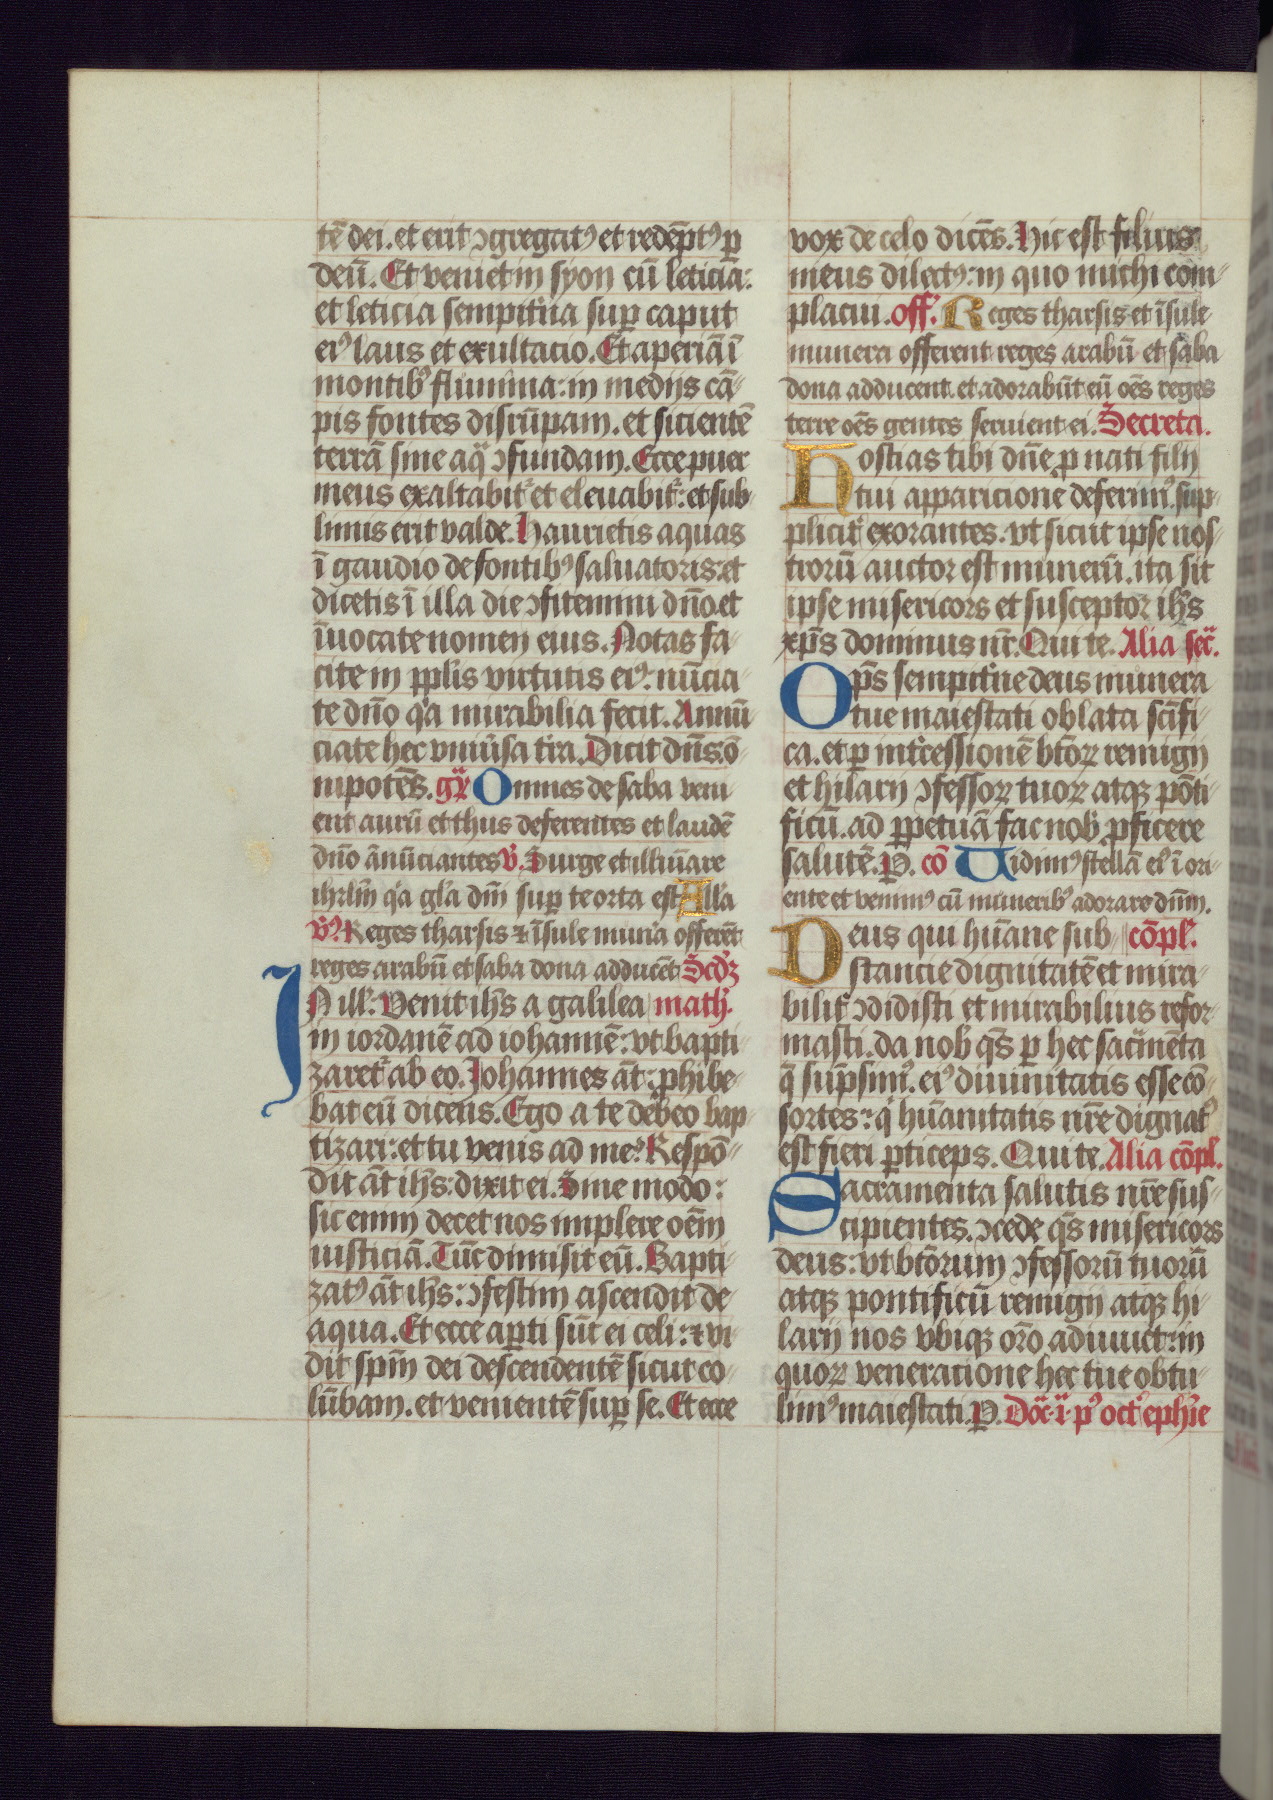 tē dei. et erit ꝯgregatꝰ et redēptꝰ ꝑ
deū. Et veniet in syon cū leticia:
et leticia sempit̾na suꝑ caput
eiꝰ laus et exultacio. Et aperiā ī
montibꝰ flumina: in medijs cā-
pis fontes disrūpam. et sicientē
terrā sine aqͣ ꝯfundam. Ecce puer
meus exaltabit᷑ et eleuabit᷑: et sub-
limis erit valde. Haurietis aquas
ī gaudio de fontibꝰ saluatoris: et
dicetis ī illa die ꝯfitemini dn̄o et
īuocate nomen eius. Notas fa-
cite in ppl̄is virtutis eiꝰ: nūcia-
te dn̄o qͥa mirabilia fecit. Annū-
ciate hec vniūsa t̾ra. Dicit dn̄s o-
nīpotēs. gͬ Omnes de saba veni-
ent aurū et thus deferentes et laudē
dn̄o ānūciantes v̾. Surge et illuīare
ihrl̄m qͥa gl̄a dn̄i suꝑ te orta est All̄a
v̾ꝰ. Reges tharsis ⁊ īsule mun̾a offerēt
reges arabū et saba dona adducēt Scd̾ꝫ
IN ill̾. Venit ih̄s a galilea math̾.
in iordanē ad iohannē: vt bapti-
zaret᷑ ab eo. Johannes āt: ꝓhibe-
bat eū dicens. Ego a te debeo bap-
tizari: et tu venis ad me? Respō-
dit āt ih̄s: dixit ei. Sine modo:
sic enim decet nos implere oēm
iusticiā. Tūc dimisit eū. Bapti-
zatꝰ āt ih̄s: ꝯfestim ascendit de
aqua. Et ecce aꝑti sūt ei celi: ⁊ vi-
dit spm̄ dei descendentē sicut co-
lūbam. et venientē suꝑ se. Et ecce
vox de celo dicēs. Hic est filius
meus dilectꝰ: in quo michi com-
placui. off̾. Reges tharsis et īsule
munera offerent reges arabū et saba
dona adducent. et adorabūt eū oēs reges
terre oēs gentes seruient ei. Secreta.
Hostias tibi dn̄e ꝓ nati filij
tui apparicione deferimꝰ. sup-
plicit̾ exorantes. vt sicut ipse nos-
trorū auctor est munerū. ita sit
ipse misericors et susceptor ih̄s
xp̄s dominus nr̄. Qui te. Alia secͣ.
Op̄s sempit̾ne deus munera
tue maiestati oblata scīfi-
ca. et ꝑ int̾cessionē bt̄oꝝ remigij
et hilarij ꝯfessoꝝ tuoꝝ atqꝫ pōti-
ficū. ad ꝑpetuā fac nob̾ ꝓficere
salutē. P̾. cō Vidimꝰ stellā eiꝰ ī ori-
ente et venimꝰ cū muneribꝰ adorare dn̄m.
Deus qui hūane sub- cōpl̾.
stancie dignitatē et mira-
bilit̾ ꝯdidisti et mirabilius refor-
masti. da nob̾ qs̄ ꝑ hec sacͣmēta
q̄ sūpsimꝰ. eiꝰ diuinitatis esse cō-
sortes: qͥ hūanitatis nr̄e dignatꝰ
est fieri ꝑticeps. Qui te. Alia cōpl̾.
Sacramenta salutis nr̄e sus-
cipientes. ꝯcede qs̄ misericors
deus: vt bt̄orum ꝯfessorū tuorū
atqꝫ pontificū remigij atqꝫ hi-
larij nos vbiqꝫ or̄o adiuuet: in
quoꝝ veneracione hec tue obtu-
limꝰ maiestati. P̾. Dōᷓ .i. pꝰ oct̾ eph̾ie